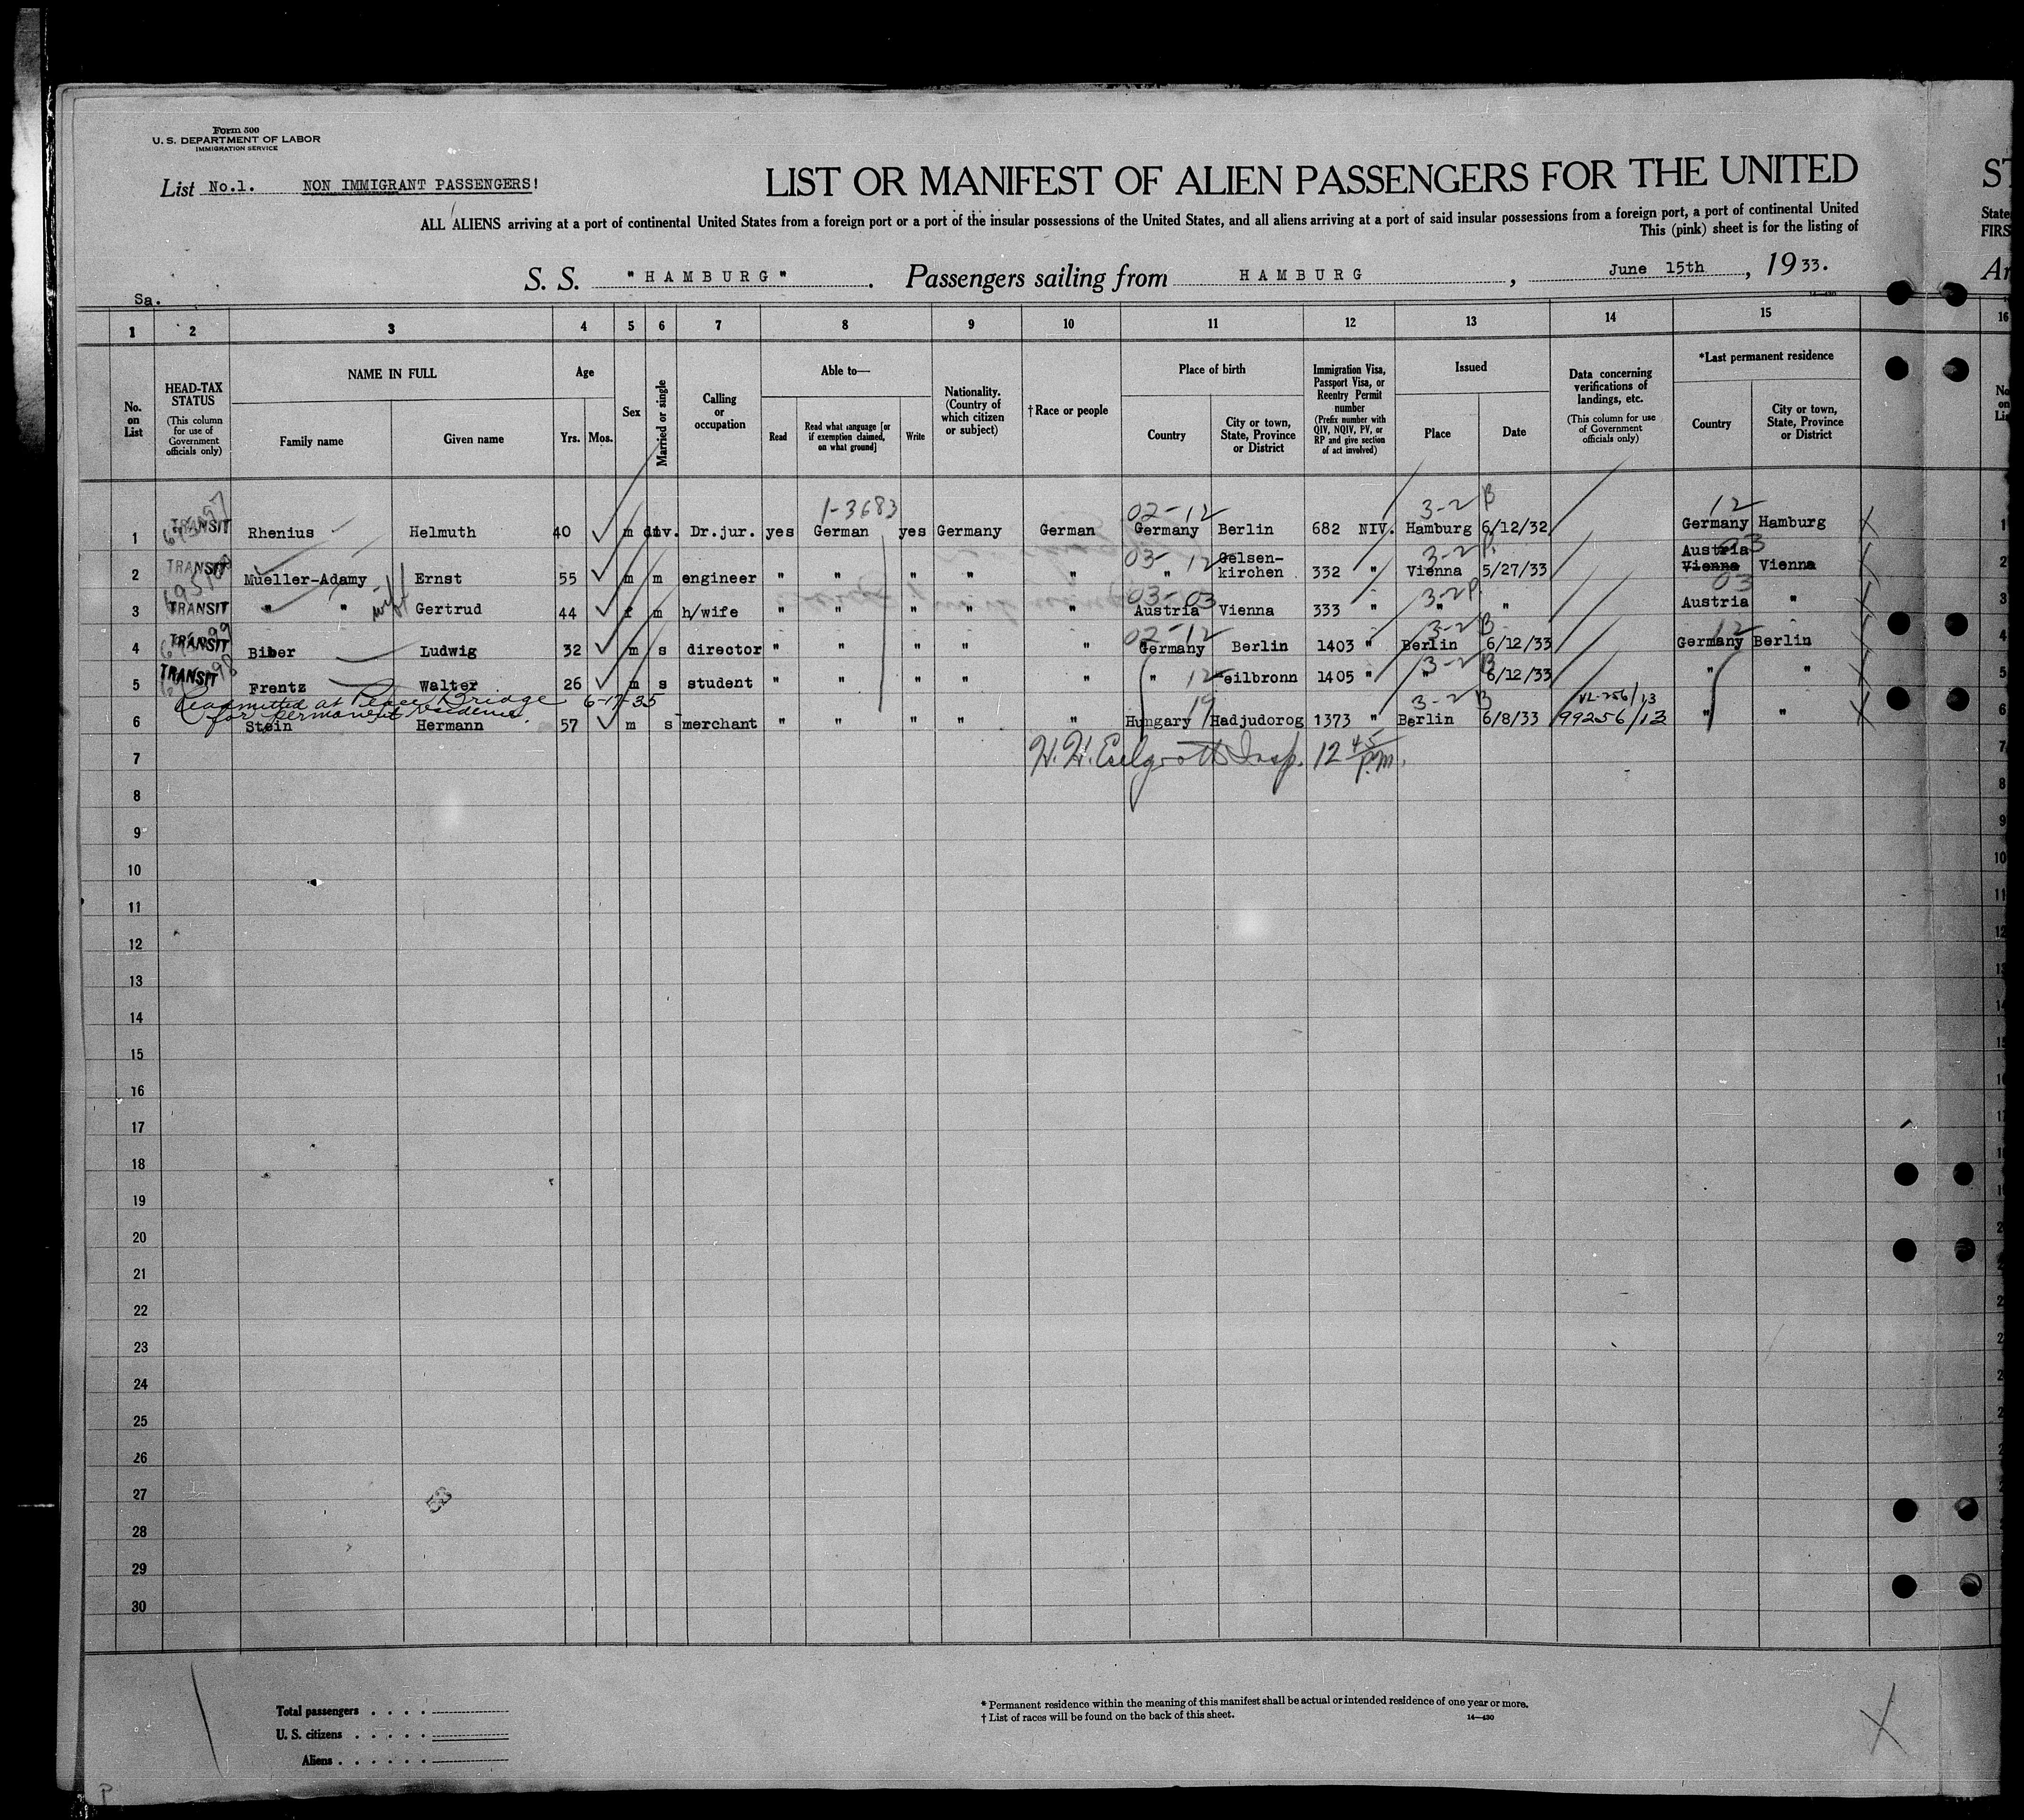 Form 500
U. S. DEPARTMENT OF LABOR
IMMIGRATION SERVICE
List No.1. NON IMMIGRANT PASSENGERS!
LIST OR MANIFEST OF ALIEN PASSENGERS FOR THE UNITED
ALL ALIENS arriving at a port of continental United States from a foreign port or a port of the insular possessions of the United States, and all aliens arriving at a port of said insular possessions from a foreign port, a port of continental United
This (pink) sheet is for the listing of
S. S. "HAMBURG". Passengers sailing from HAMBURG, June 15th, 1933.
Sa.
1 2 3 4 5 6 7 8 9 10 11 12 13 14 15 16
No. on List
HEAD-TAX STATUS
(This column for use of Government officials only)
NAME IN FULL
Family name Given name
Age
Yrs. Mos.
Sex
Married or single
Calling or occupation
Able to—
Read
Read what language [or if exemption claimed, on what ground]
Write
Nationality. (Country of which citizen or subject)
†Race or people
Place of birth
Country
City or town, State, Province or District
Immigration Visa, Passport Visa, or Reentry Permit number
(Prefix number with QIV, NQIV, PV, or RP and give section of act involved)
Issued
Place Date
Data concerning verifications of landings, etc.
(This column for use of Government officials only)
*Last permanent residence
Country
City or town, State, Province or District
1-3683 02-12 3-2 B 12
1 TRANSIT Rhenius Helmuth 40 m div. Dr.jur. yes German yes Germany German Germany Berlin 682 NIV. Hamburg 6/12/32 Germany Hamburg 1
03-12 3-2 P. 03
2 TRANSIT Mueller-Adamy Ernst 55 m m engineer " " " " " " Gelsen-kirchen 332 " Vienna 5/27/33 Austria Vienna Vienna 2
wife 03-03 3-2 P. 03
3 TRANSIT " " Gertrud 44 f m h/wife " " " " " Austria Vienna 333 " " " Austria " 3
02-12 3-2 B 12
4 TRANSIT Biber Ludwig 32 m s director " " " " " Germany Berlin 1403 " Berlin 6/12/33 Germany Berlin 4
12 3-2 B
5 TRANSIT Frentz Walter 26 m s student " " " " " " eilbronn 1405 " " 6/12/33 " " 5
Readmitted at Peace Bridge 6-17-35
for permanent residence.
19 3-2 B VL-256/13
6 Stein Hermann 57 m s merchant " " " " " Hungary Hadjudorog 1373 " Berlin 6/8/33 99256/13 " " 6
Insp. 12 45 P.M.
7
8
9
10
11
12
13
14
15
16
17
18
19
20
21
22
23
24
25
26
27
28
29
30
53
Total passengers
U. S. citizens
Aliens
* Permanent residence within the meaning of this manifest shall be actual or intended residence of one year or more.
† List of races will be found on the back of this sheet.
14—430